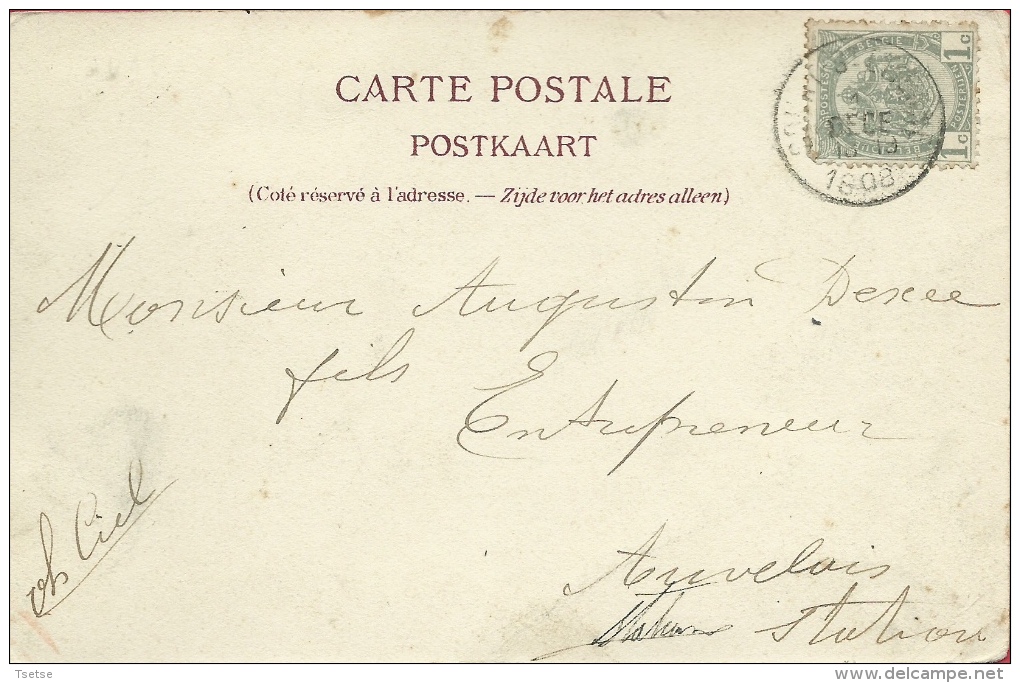 CARTE POSTALE
POSTKAART
(Coté réservé à l'adresse. — Zijde voor het adres alleen)
BELGIE
1c
1c
DECE
1908
Monsieur Augustin Dexee
fils
Entrepreneur
Ciel
Auvelais
Station
Tsetse
delcampe.net